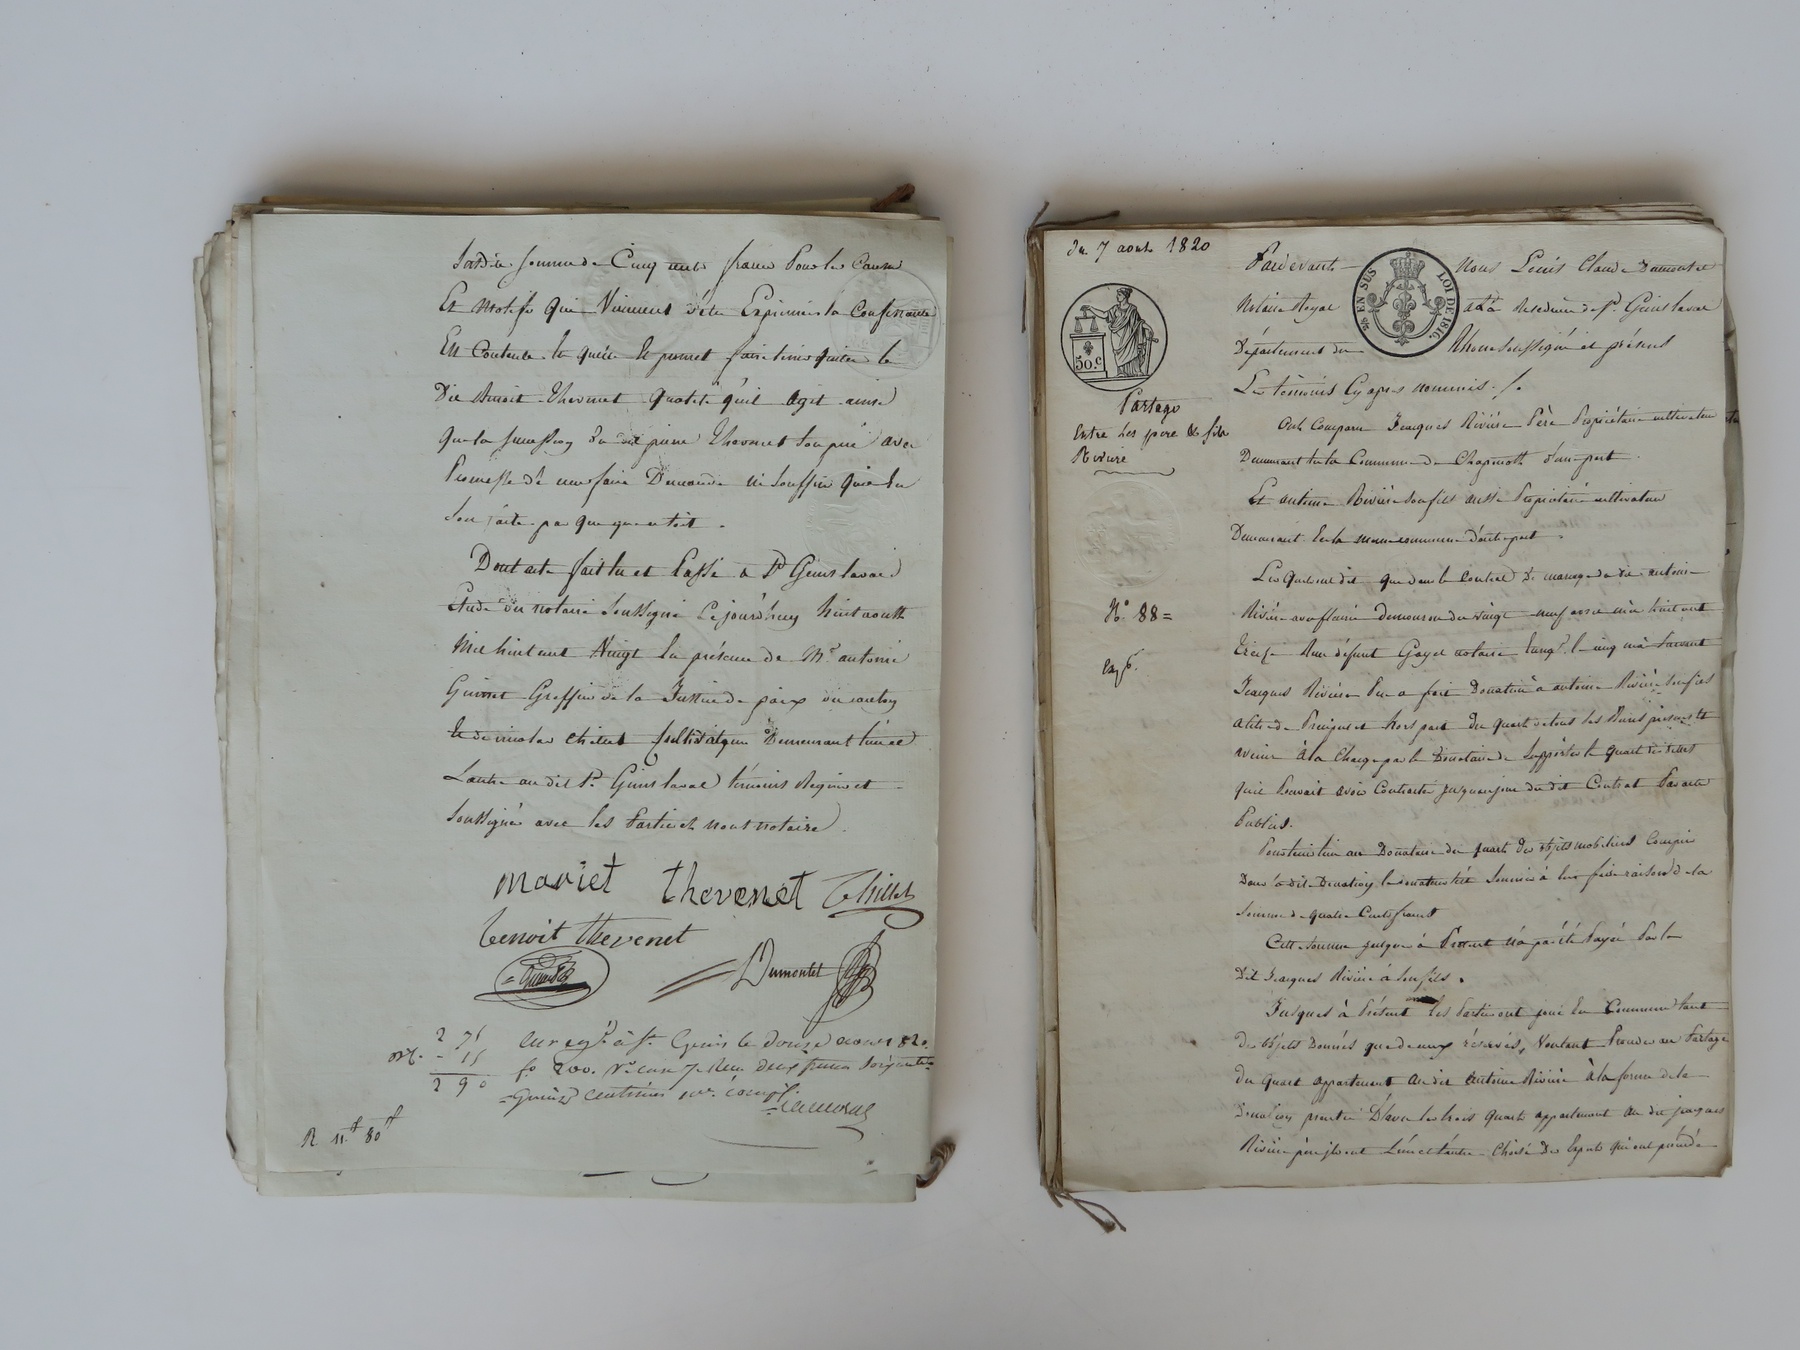 Ladite somme de Cinq cents francs Pour les Causes
Et motifs qui Viennent d'être Exprimés la Confessant
Et Contente le quitte et promet faire tenir quitte le
Dit Benoit Thevenet qualité qu'il agit ainsi
que la succession du dit pierre Thevenet son père avec
Promesse de n'en faire Demande ni Souffrir qu'elle lui
Soit faite par que que ce soit.
Dont acte fait lu et Passé à St Genis laval
Etude du notaire Soussigné Le jourd'huy huit aoust
Mil huit cent Vingt En présence de Mr. antoine
Greffier de la Justice de paix du canton
Et de nicolas chillet Demeurant l'un et
L'autre au dit St. Genis laval témoins Requis et
Soussignés avec les Parties et nous notaire.
mariet thevenet Chillet
benoit thevenet
Dumontet
2 75
15
2 90
enregt à St. Genis le douze aout 1820.
fo 200. Ro case 7 Reçu deux francs soixante
quinze centimes
R 11 80
Du 7 aout 1820
50.c
Partage
Entre Les pere & fils
Riviere
No. 88=
exp.
EN SUS LOI DE 1816
Pardevant Nous Louis Claude Dumontet
Notaire Royal à la Résidence de St. Genis laval
Département du Rhone Soussigné et présens
Les témoins Cy après nommés./.
Ont Comparu Jacques Rivière Père Propriétaire cultivateur
Demeurant En la Commune de Chaponost d'une part.
Et antoine Rivière Son fils aussi Propriétaire cultivateur
Demeurant En la même commune d'autre part.
Lesquels ont dit que dans le Contrat de mariage du dit antoine
Rivière avec flavie du vingt neuf mil huit cent
treize Reçu défunt Goyet notaire Enregt. le cinq mai Suivant
Jacques Rivière Père a fait Donation à antoine Rivière Son fils
à titre de Préciput et hors part du quart de tous les Biens présens et
avenir à la Charge par le Donataire de Supporter le quart des dettes
qu'il Pouvait avoir Contracté jusqu'au jour du dit Contrat
Publics.
Pour tenir lieu au Donataire du quart des objets mobiliers Compris
Dans la dite Donation le donateur s'est Soumis à lui faire raison de la
Somme de quatre Cents francs
Cette Somme jusque à Présent n'a pas été Payée Par le
Dit Jacques Rivière à Son fils.
Jusques à Présent les Parties ont joui En Commun tant
Des objets Donnés que de ceux réservés, Voulant Procéder au Partage
Du quart appartenant au dit antoine Rivière à la forme de la
Donation D'avec les trois quarts appartenant au dit jacques
Rivière père ils ont L'un et l'autre Choisi Des Experts qui ont procédé